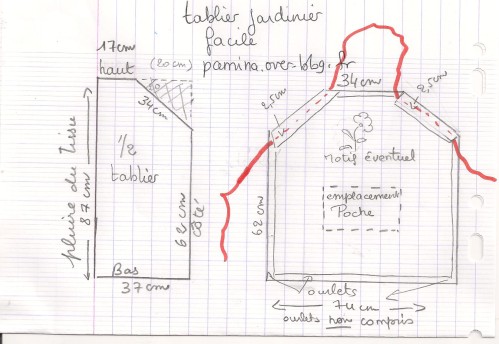 tablier jardinier
facile
pamina.over-blog.fr
17cm
haut
(20cm)
34cm
1/2
tablier
pliure du tissu
87cm
62cm
côté
Bas
37cm
34cm
2,5cm
2,5cm
Motif éventuel
emplacement
Poche
62cm
ourlets
74cm
ourlets non compris